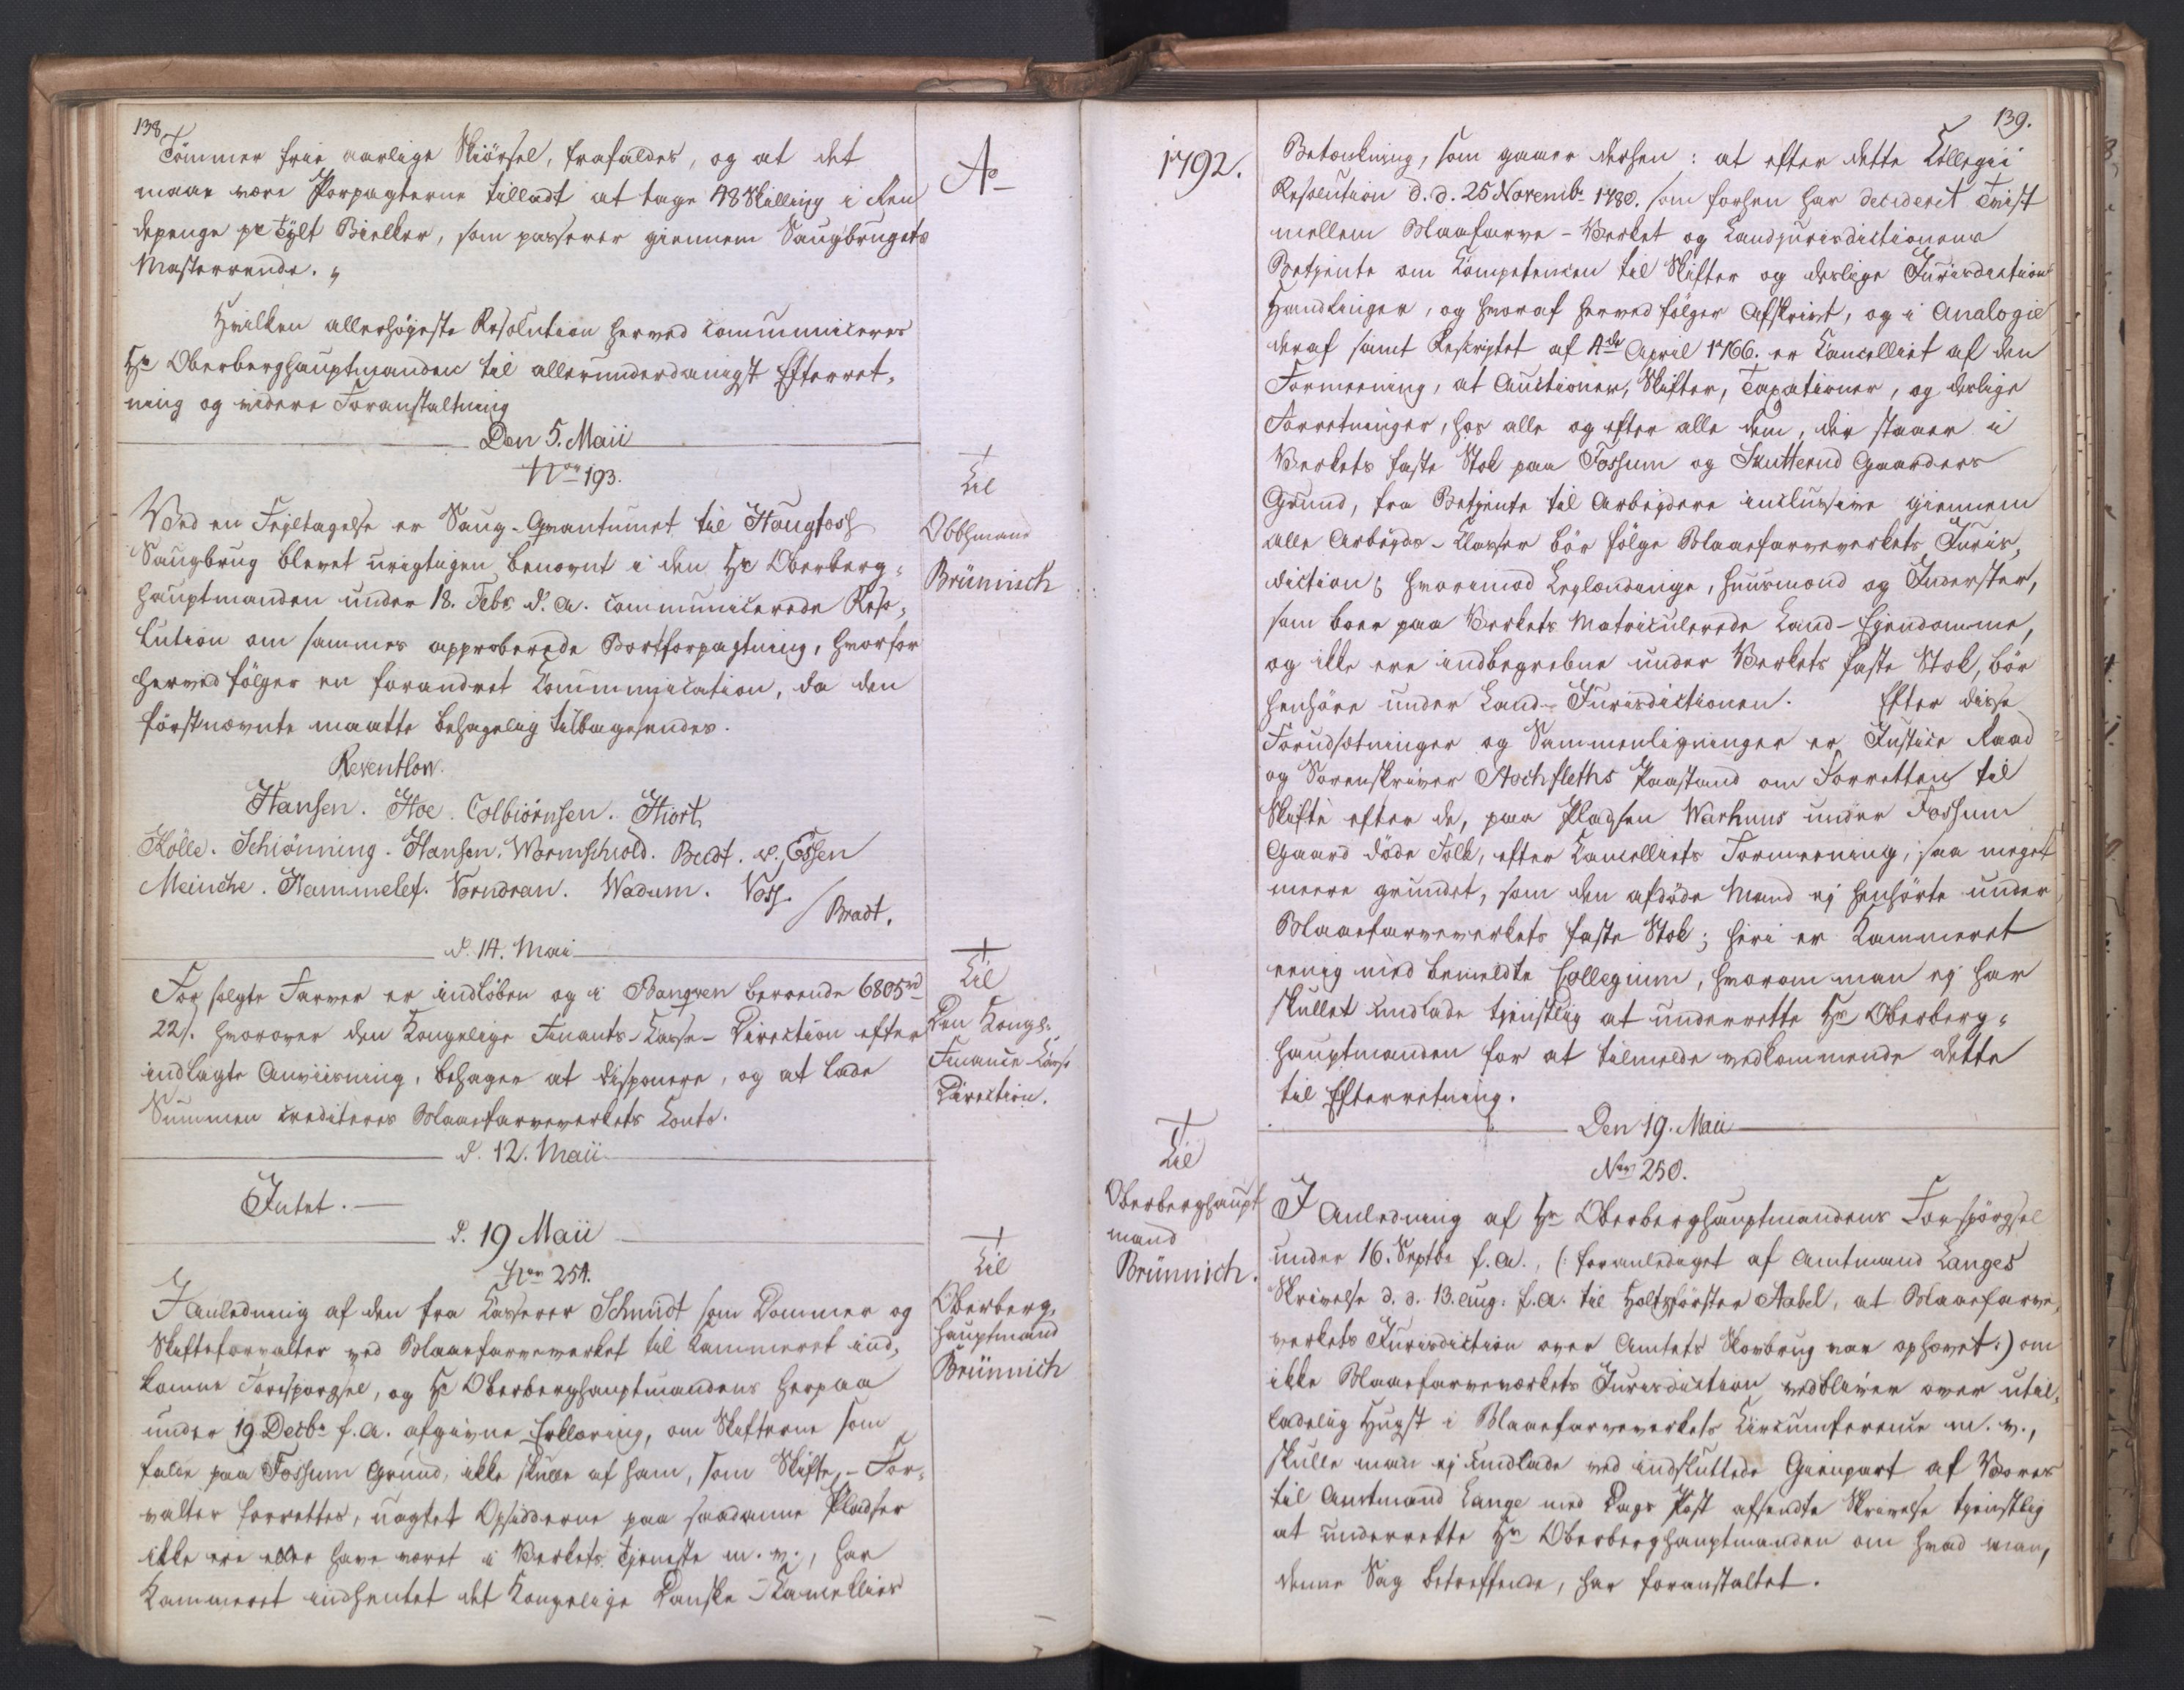 138
Ao
Tømmer frie aarlige Kiørsel, frafaldes, og at det
maae være Forpagterne tilladt at tage 48 Skilling i Ren
depenge pr Tylt Bielker, som passerer giennem Saugbrugets
Masterrende.
Hvilken allerhøyeste Resolution herved communiceres
Hr Oberberghauptmanden til allerunderdanigst Efterret,
ning og videre Foranstaltning
Den 5. Maii
Nor 193.
Til
Obbhmand
Brünnich
Ved en Fejltagelse er Saug-Qvantumet til Haugfoss
Saugbrug blevet urigtigen benævnt i den Hr Oberberg,
hauptmanden under 18. Febr d. a. communicerede Reso,
lution om sammes approberede Bortforpagtning, hvorfor
herved følger en forandret Communication, da den
førstnævnte maatte behagelig tilbagesendes.
Reventlow.
Hansen. Hoe. Colbiørnsen. Hiort
Kölle. Schiønning. Hansen. Wormschiold. Bendt. v. Essen
Meinche. Hammelef. Vorndran. Wadum. Voss.
/ Bradt.
d. 14. Mai
Til
Den Kongl.
Finance Casse
Direction.
For solgte Farver er indløben og i Banqven beroende 6805 rd
22 s. hvorover den Kongelige Finants-Casse-Direction efter
indlagte Anviisning, behager at disponere, og at lade
Summen crediteres Blaaefarveverkets Conto.
d. 12. Maii
Intet.
d. 19 Maii
Nor 251.
Til
Oberberg,
hauptmand
Brünnich
I Anledning af den fra Casserer Schmidt som Dommer og
Skifteforvalter ved Blaaefarveverket til Kammeret ind,
komne Forespørgsel, og Hr Oberberghauptmandens herpaa
under 19 Decbr f. a. afgivne Erklæring, om Skifterne som
falde paa Fossum Grund, ikke skulle af ham, som Skifte-For,
valter forrettes, uagtet Opsidderne paa saadanne Pladser
ikke ere eller have været i Verkets Tjeneste m. v., har
Kammeret indhentet det Kongelige Danske-Cancellies
139.
1792.
Betænkning, som gaaer derhen: at efter dette Collegii
Resolution d. d. 25 Novembr 1780. som forhen har decideret Tvist
mellem Blaafarve-Verket og Landjurisdictionens
Betjente om Competencen til Skifter og deslige Jurisdictions
Handlinger, og hvoraf herved følger Afskrivt, og i Analogie
deraf samt Rescriptet af 4de April 1766. er Cancelliet af den
Formeening, at Auctioner, Skifter, Taxationer, og deslige
Forretninger, hos alle og efter alle dem, der staaer i
Verkets faste Stok paa Fossum og Skutterud Gaarders
Grund, fra Betjente til Arbejdere inclusive giennem
alle Arbejds-Classer bør følge Blaaefarveverkets Juris,
diction; hvorimod Leylændinge, Huusmænd og Inderster,
som boer paa Verkets Matriculerede Land-Ejendomme,
og ikke ere indbegrebne under Verkets faste Stok, bør
henhøre under Land-Jurisdictionen. Efter disse
Forudsætninger og Sammenligninger er Justice Raad
og Sorenskriver Hochfleths Paastand om Forretten til
Skifte efter de, paa Pladsen Warhuus under Fossum
Gaard døde Folk, efter Cancelliets Formeening, saa meget
meere grundet, som den afdøde Mand ej henhørte under
Blaaefarveverkets faste Stok; heri er Kammeret
eenig med bemeldte Collegium, hvorom man ej har
skullet undlade tjenstlig at underrette Hr Oberberg,
hauptmanden for at tilmelde vedkommende dette
til Efterretning.
Den 19. Maii
Nor 250.
Til
Oberberghaupt
mand
Brünnich.
I Anledning af Hr Oberberghauptmandens Forespørgsel
under 16. Septbr f. a., (: foranlediget af Amtmand Langes
Skrivelse d. d. 13. Aug. f. a. til Holtzførster Aabel, at Blaaefarve,
verkets Jurisdiction over Amtets Skovbrug var ophævet :) om
ikke Blaaefarveværkets Jurisdiction vedbliver over util,
ladelig Hugst i Blaaefarveverkets Circumference m. v.,
skulle man ej undlade ved indsluttede Gienpart af Vores
til Amtmand Lange med Dags Post afsendte Skrivelse tjenstlig
at underrette Hr Oberberghauptmanden om hvad man,
denne Sag betreffende, har foranstaltet.